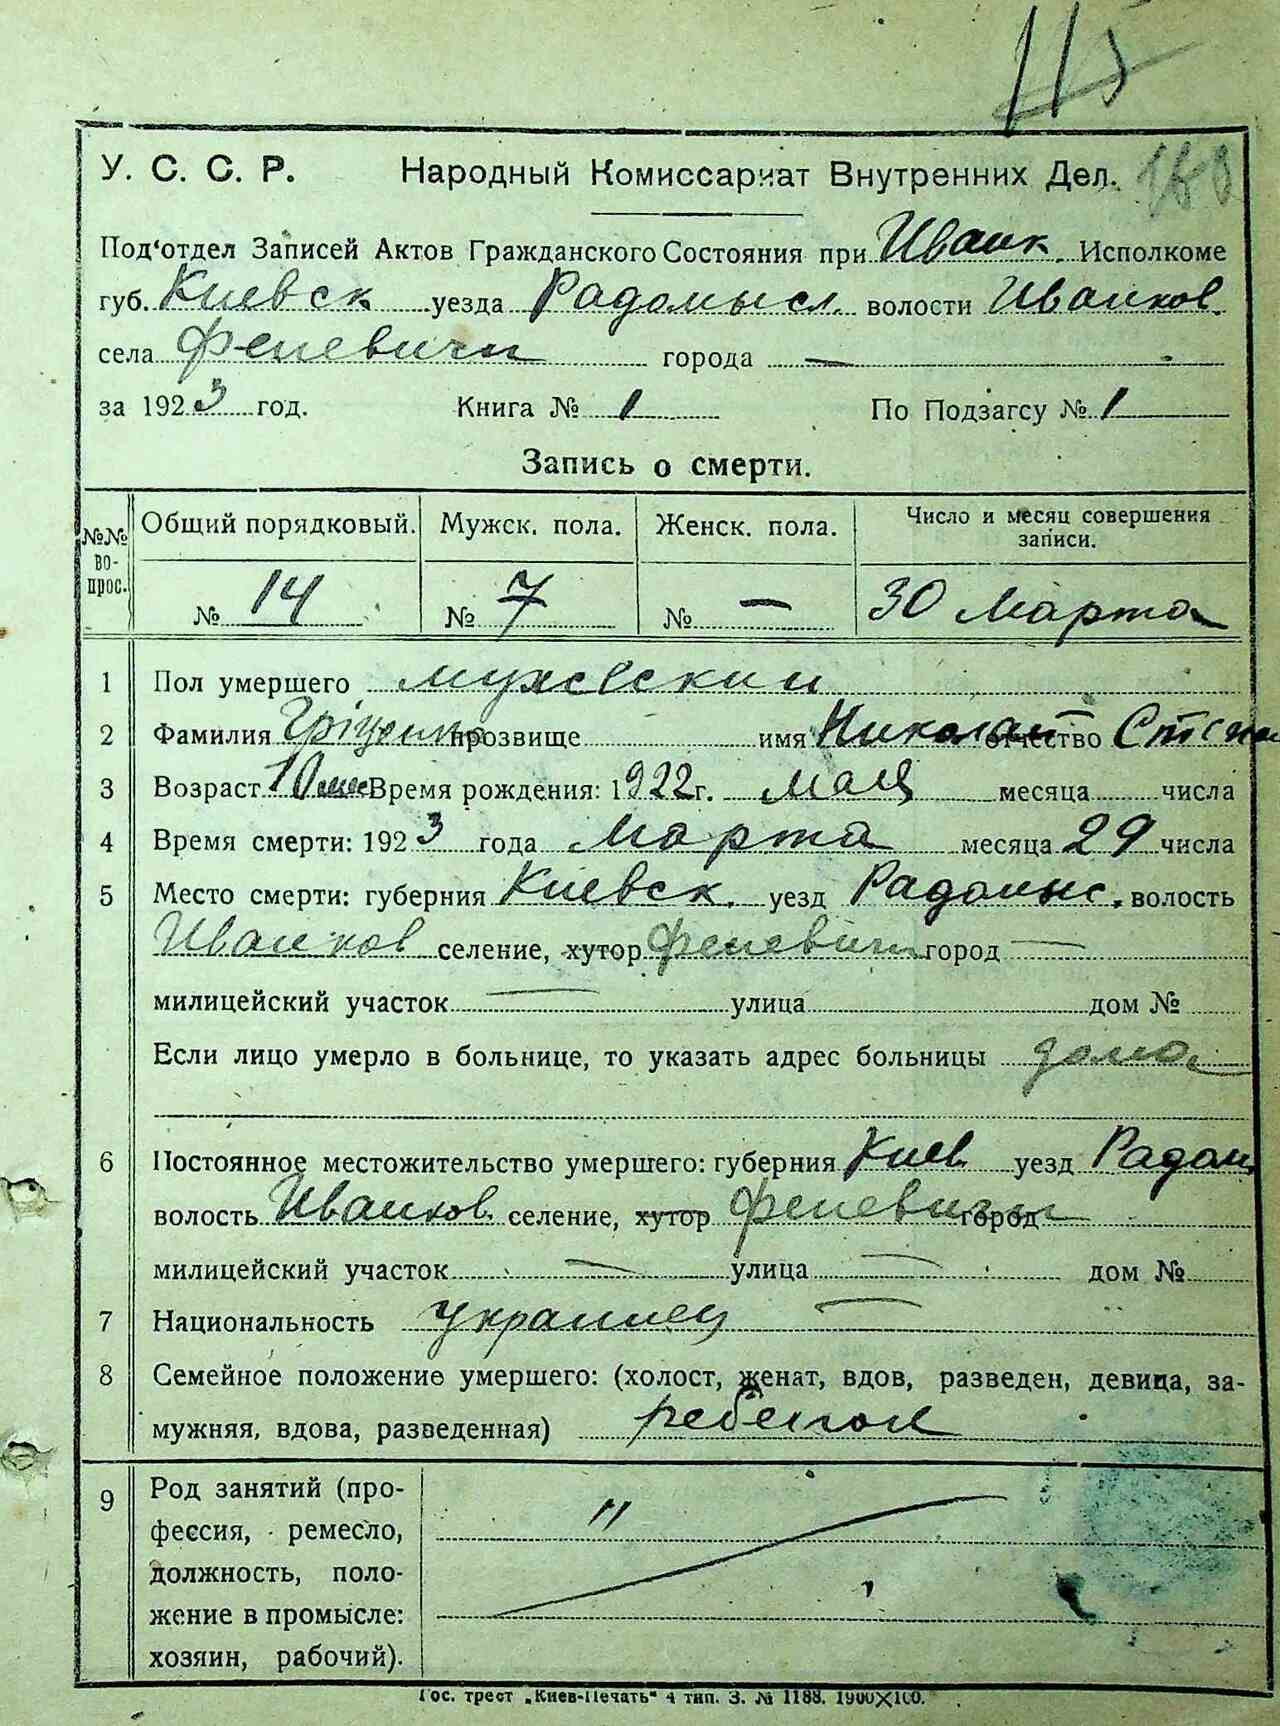 115
У. С. С. Р. Народный Комиссариат Внутренних Дел.
Под'отдел Записей Актов Гражданского Состояния при Иванк. Исполкоме
губ. Киевск уезда Радомысл. волости Иванков.
села Феневичи города —
за 1923 год. Книга № 1 По Подзагсу № 1
Запись о смерти.
№№ вопрос. Общий порядковый. Мужск. пола. Женск. пола. Число и месяц совершения записи.
№ 14 № 7 № — 30 Марта
1 Пол умершего мужескии
2 Фамилия Гріценко прозвище имя Николай отчество Степан
3 Возраст 10 мес Время рождения: 1922 г. мая месяца числа
4 Время смерти: 1923 года Марта месяца 29 числа
5 Место смерти: губерния Киевск. уезд Радомыс. волость
Иванков селение, хутор Феневичи город —
милицейский участок — улица дом №
Если лицо умерло в больнице, то указать адрес больницы дома
6 Постоянное местожительство умершего: губерния Киев. уезд Радом
волость Иванков. селение, хутор Феневичи город
милицейский участок — улица — дом №
7 Национальность украинец —
8 Семейное положение умершего: (холост, женат, вдов, разведен, девица, за-
мужняя, вдова, разведенная) ребенок
9 Род занятий (про-
фессия, ремесло, "
должность, поло-
жение в промысле:
хозяин, рабочий).
Гос. трест „Киев-Печать" 4 тип. З. № 1188. 1900×100.